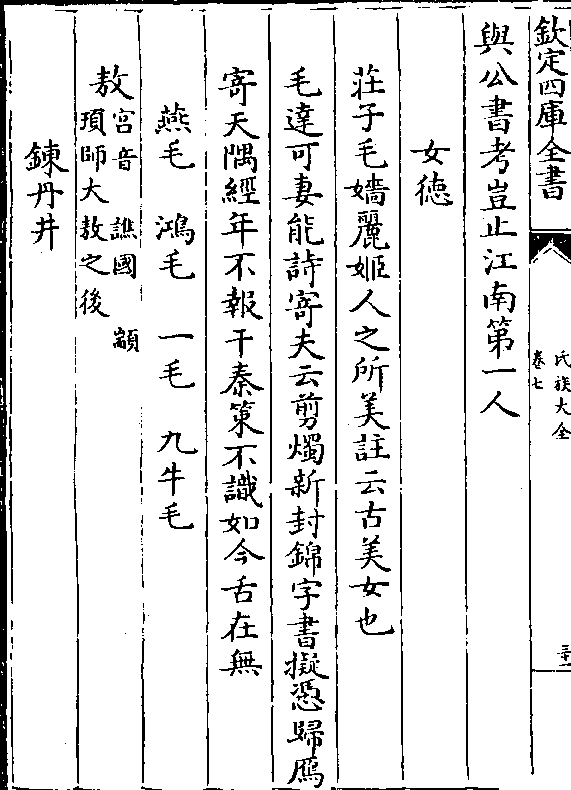 欽定四庫全書
氏族大全
卷七
三十一
與公書考豈止江南第一人
女德
莊子毛嬙麗姬人之所美註云古美女也
毛達可妻能詩寄夫云剪燭新封錦字書擬憑歸鴈
寄天隅經年不報干秦策不識如今舌在無
燕毛 鴻毛 一毛 九牛毛
敖宮音 譙國 顓
頊師大敖之後
鍊丹井